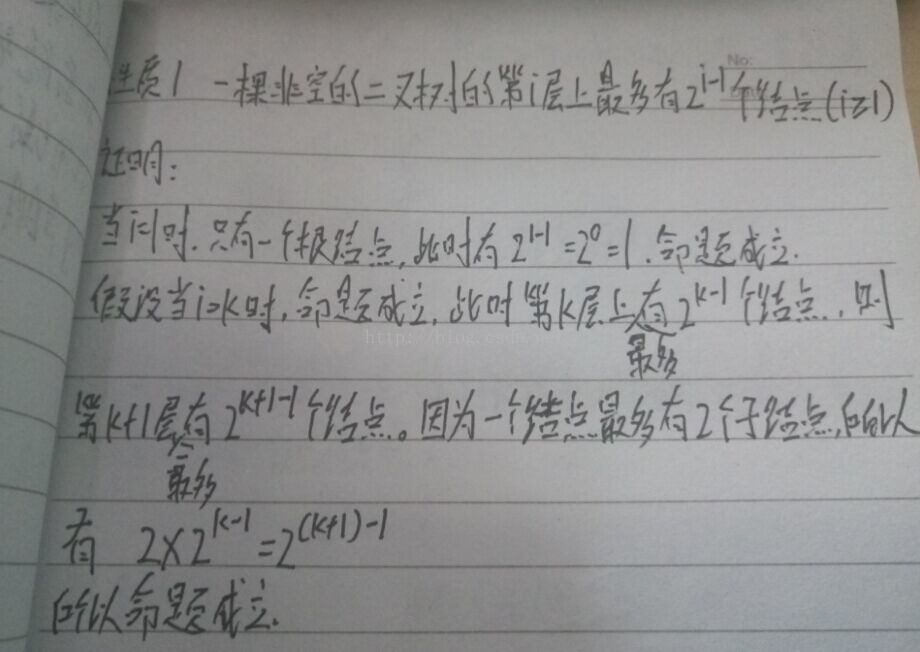 No:
性质1 一棵非空的二叉树的第i层上最多有2^{i-1}个结点(i≥1)
证明:
当i=1时,只有一个根结点,此时有2^{1-1}=2^0=1.命题成立.
假设当i=k时,命题成立,此时第k层上最多有2^{k-1}个结点.,则
http://blog.csdn.
第k+1层最多有2^{k+1-1}个结点。因为一个结点最多有2个子结点,所以
有 2×2^{k-1}=2^{(k+1)-1}
所以命题成立.